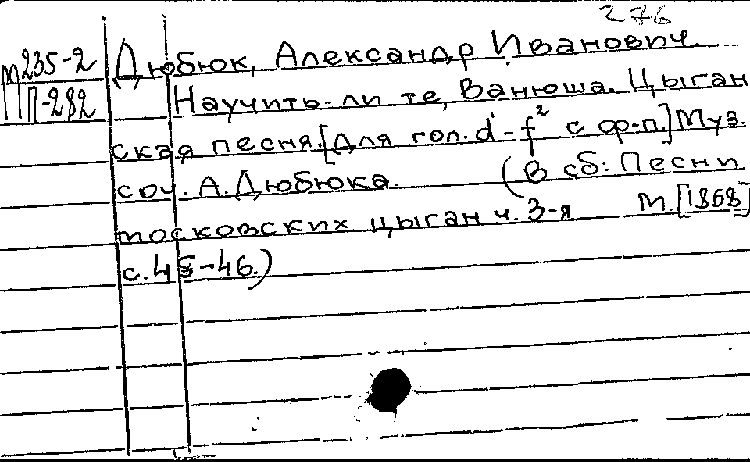 276
М235-2
П-282
Дюбюк, Александр Иванович.
Научить-ли те, Ванюша. Цыган
ская песня. [Для гол. d¹-f² с ф-п.] Муз.
соч. А. Дюбюка. (В сб: Песни
московских цыган ч. 3-я М. [1868]
с. 45-46.)